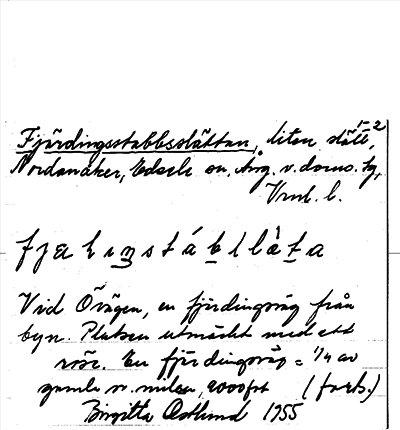 1-2
Fjärdingsstabbsslätten, liten slätt,
Nordanåker, Edsele sn, Ång. v. doms. tg,
Vnl. l.
fjæḷiŋstábḷlǻta
Vid Övägen, en fjärdingsväg från
byn. Platsen utmärkt med ett
röse. En fjärdingsväg = 1/4 av
gamla sv. milen, 9000 fot (forts.)
Birgitta Östlund 1955